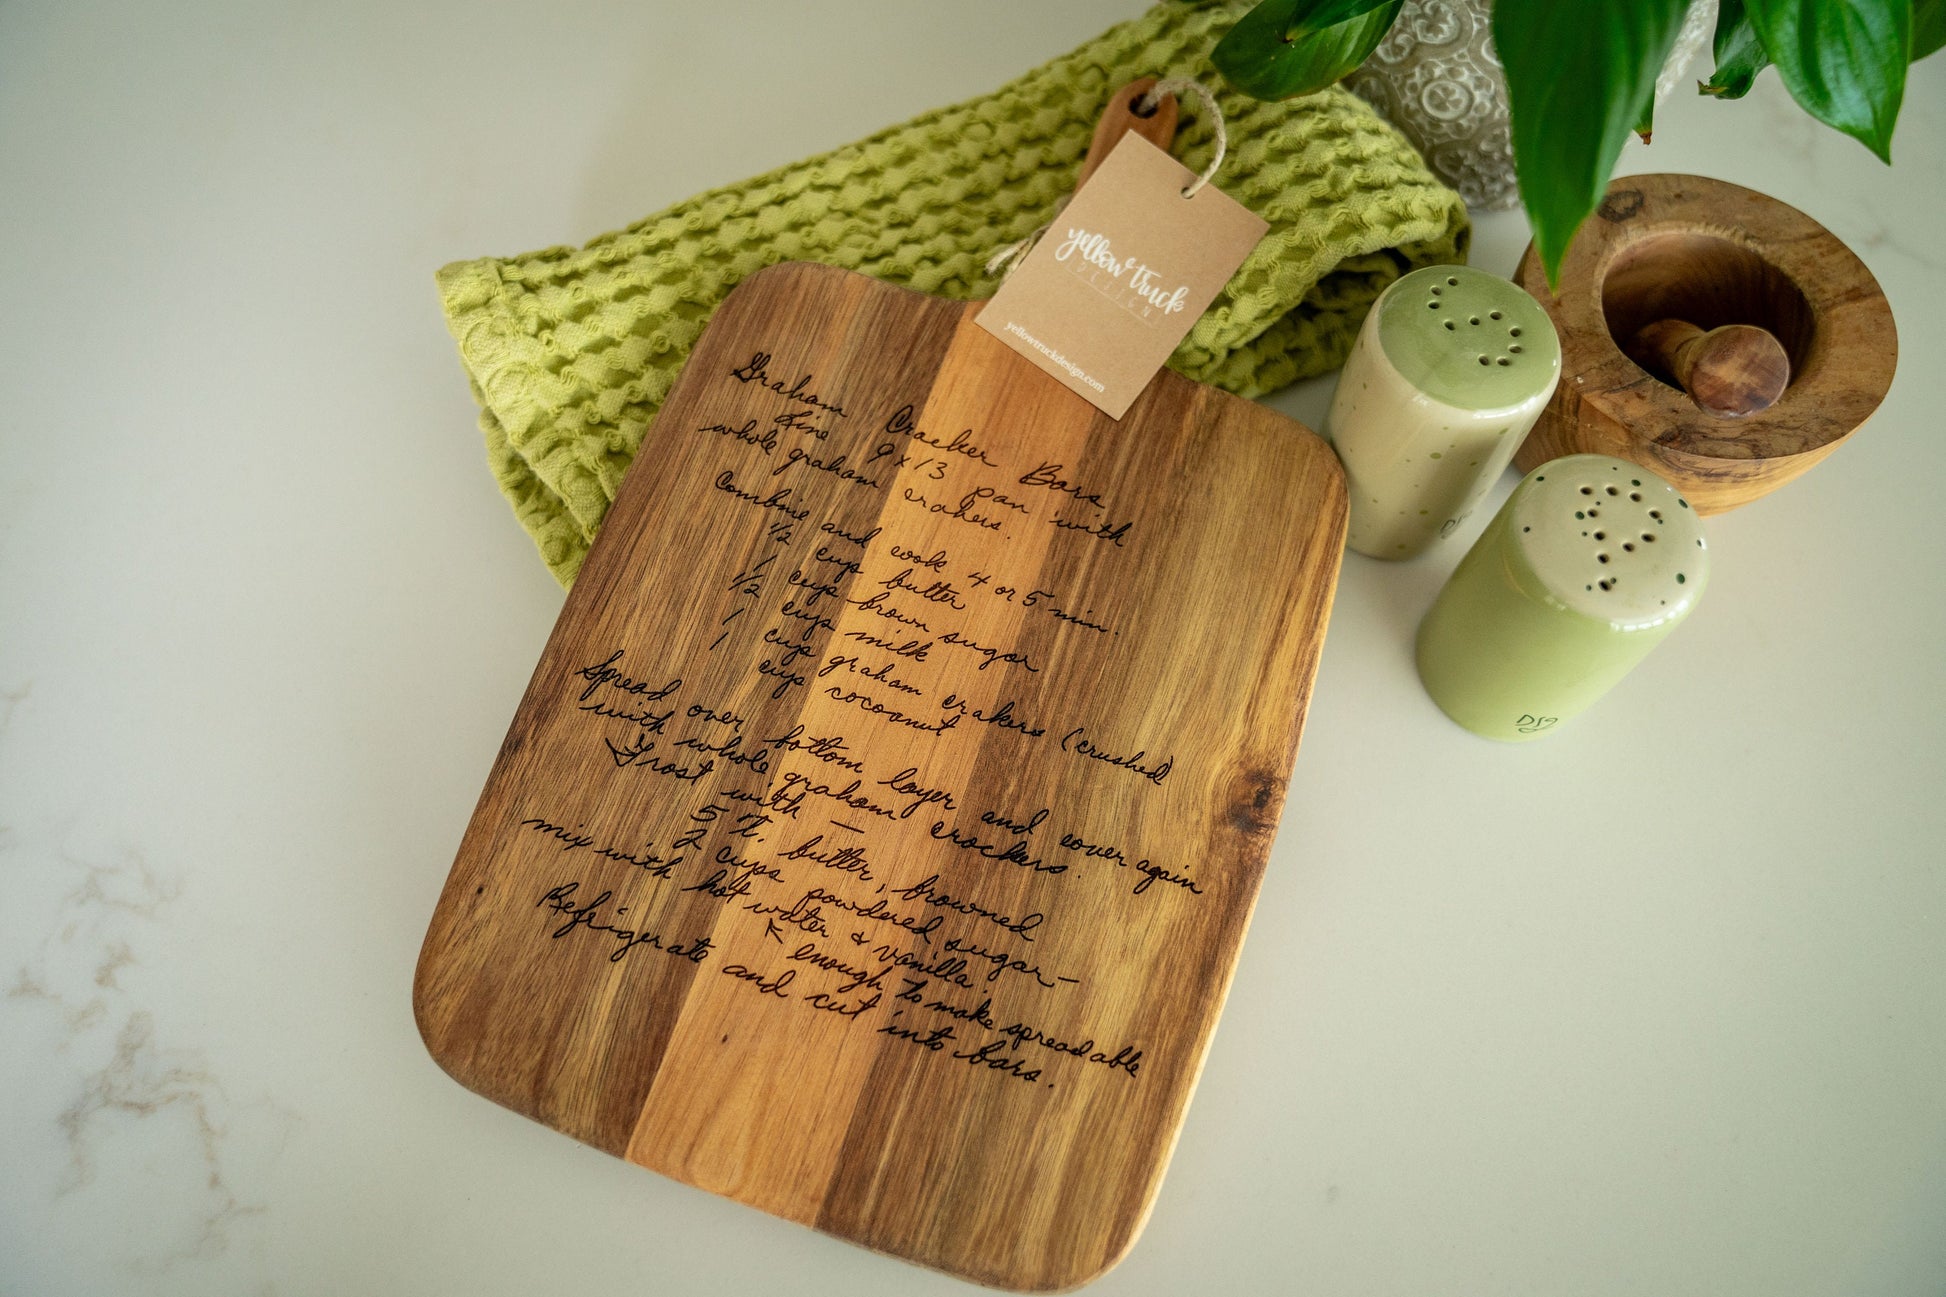 yellow truck
DESIGN
yellowtruckdesign.com
Graham Cracker Bars
Line 9x13 pan with
whole graham crakers.
Combine and cook 4 or 5 min.
1/2 cup butter
1 cup brown sugar
1/2 cup milk
1 cup graham crakers (crushed)
1 cup cocoanut
Spread over bottom layer and cover again
with whole graham crackers.
Frost with —
5 T. butter, browned
2 cups powdered sugar—
mix with hot water & vanilla.
enough to make spreadable
Refrigerate and cut into bars.
S
P
DSJ